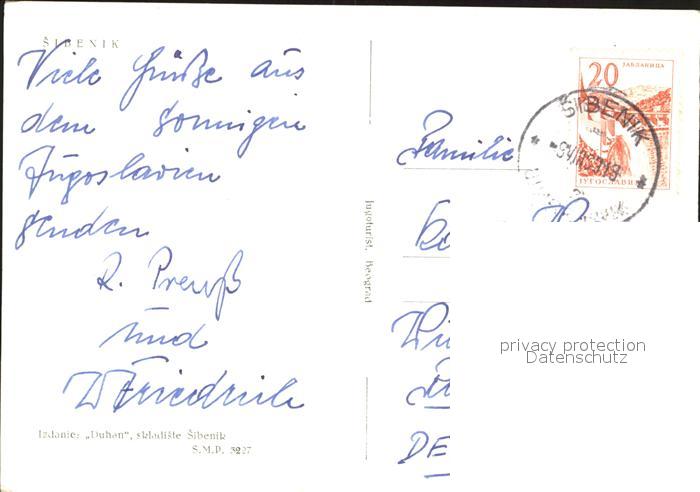 ŠIBENIK
Viele Grüße aus
dem sonnigen
Jugoslavien
senden
R. Preuß
und
W. Friedrich
Izdanje: „Duhan", skladište Šibenik
S.M.P. 3227
Jugoturist, Beograd
20
ЈАБЛАНИЦА
JYГОСЛАВИЈА
ŠIBENIK
Familie
DE
privacy protection
Datenschutz